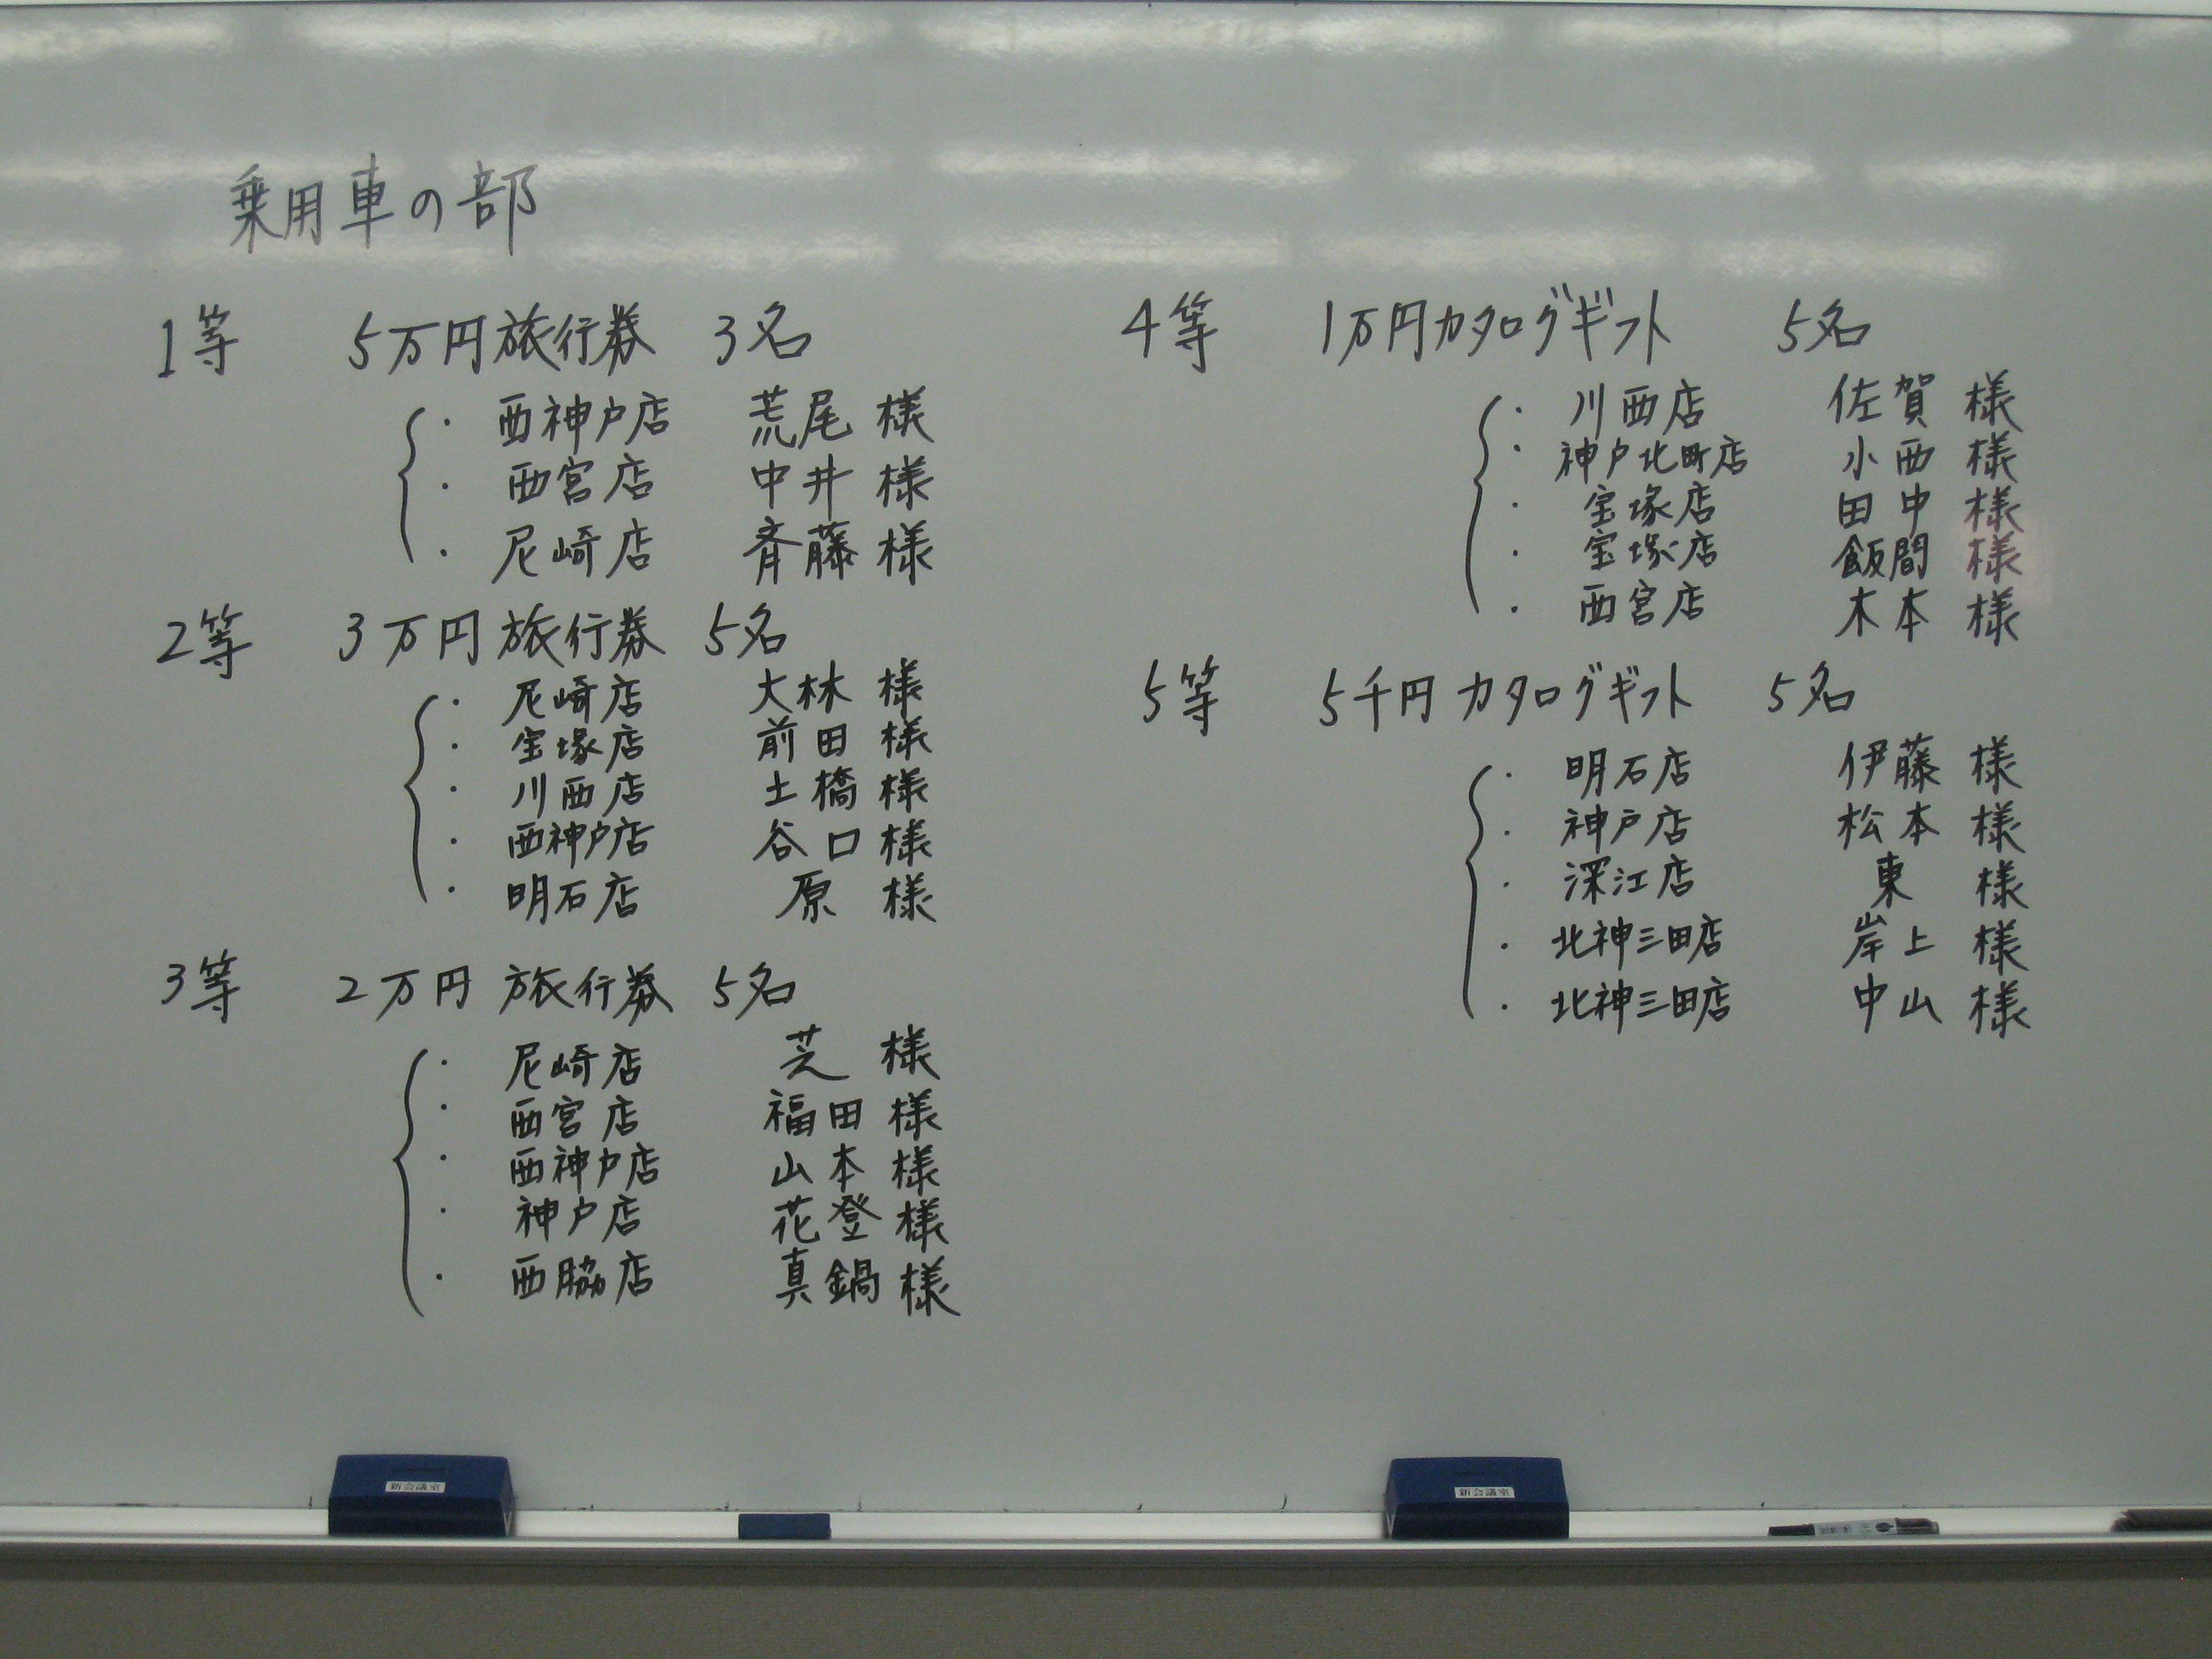 乗用車の部
1等 5万円旅行券 3名
・西神戸店 荒尾 様
・西宮店 中井 様
・尼崎店 斉藤 様
2等 3万円旅行券 5名
・尼崎店 大林 様
・宝塚店 前田 様
・川西店 土橋 様
・西神戸店 谷口 様
・明石店 原 様
3等 2万円旅行券 5名
・尼崎店 芝 様
・西宮店 福田 様
・西神戸店 山本 様
・神戸店 花登 様
・西脇店 真鍋 様
4等 1万円カタログギフト 5名
・川西店 佐賀 様
・神戸北町店 小西 様
・宝塚店 田中 様
・宝塚店 飯間 様
・西宮店 木本 様
5等 5千円カタログギフト 5名
・明石店 伊藤 様
・神戸店 松本 様
・深江店 東 様
・北神三田店 岸上 様
・北神三田店 中山 様
新会議室
新会議室